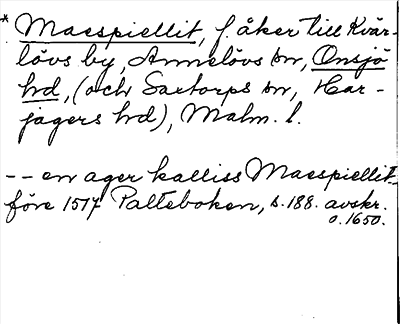 * Maespiellit, f. åker till Kvär-
lövs by, Annelövs sn, Onsjö
hd, (och Saxtorps sn, Har-
jagers hd), Malm. l.
-- en ager kalliss Maespiellit --
före 1517 Palteboken, s. 188. avskr.
o. 1650.